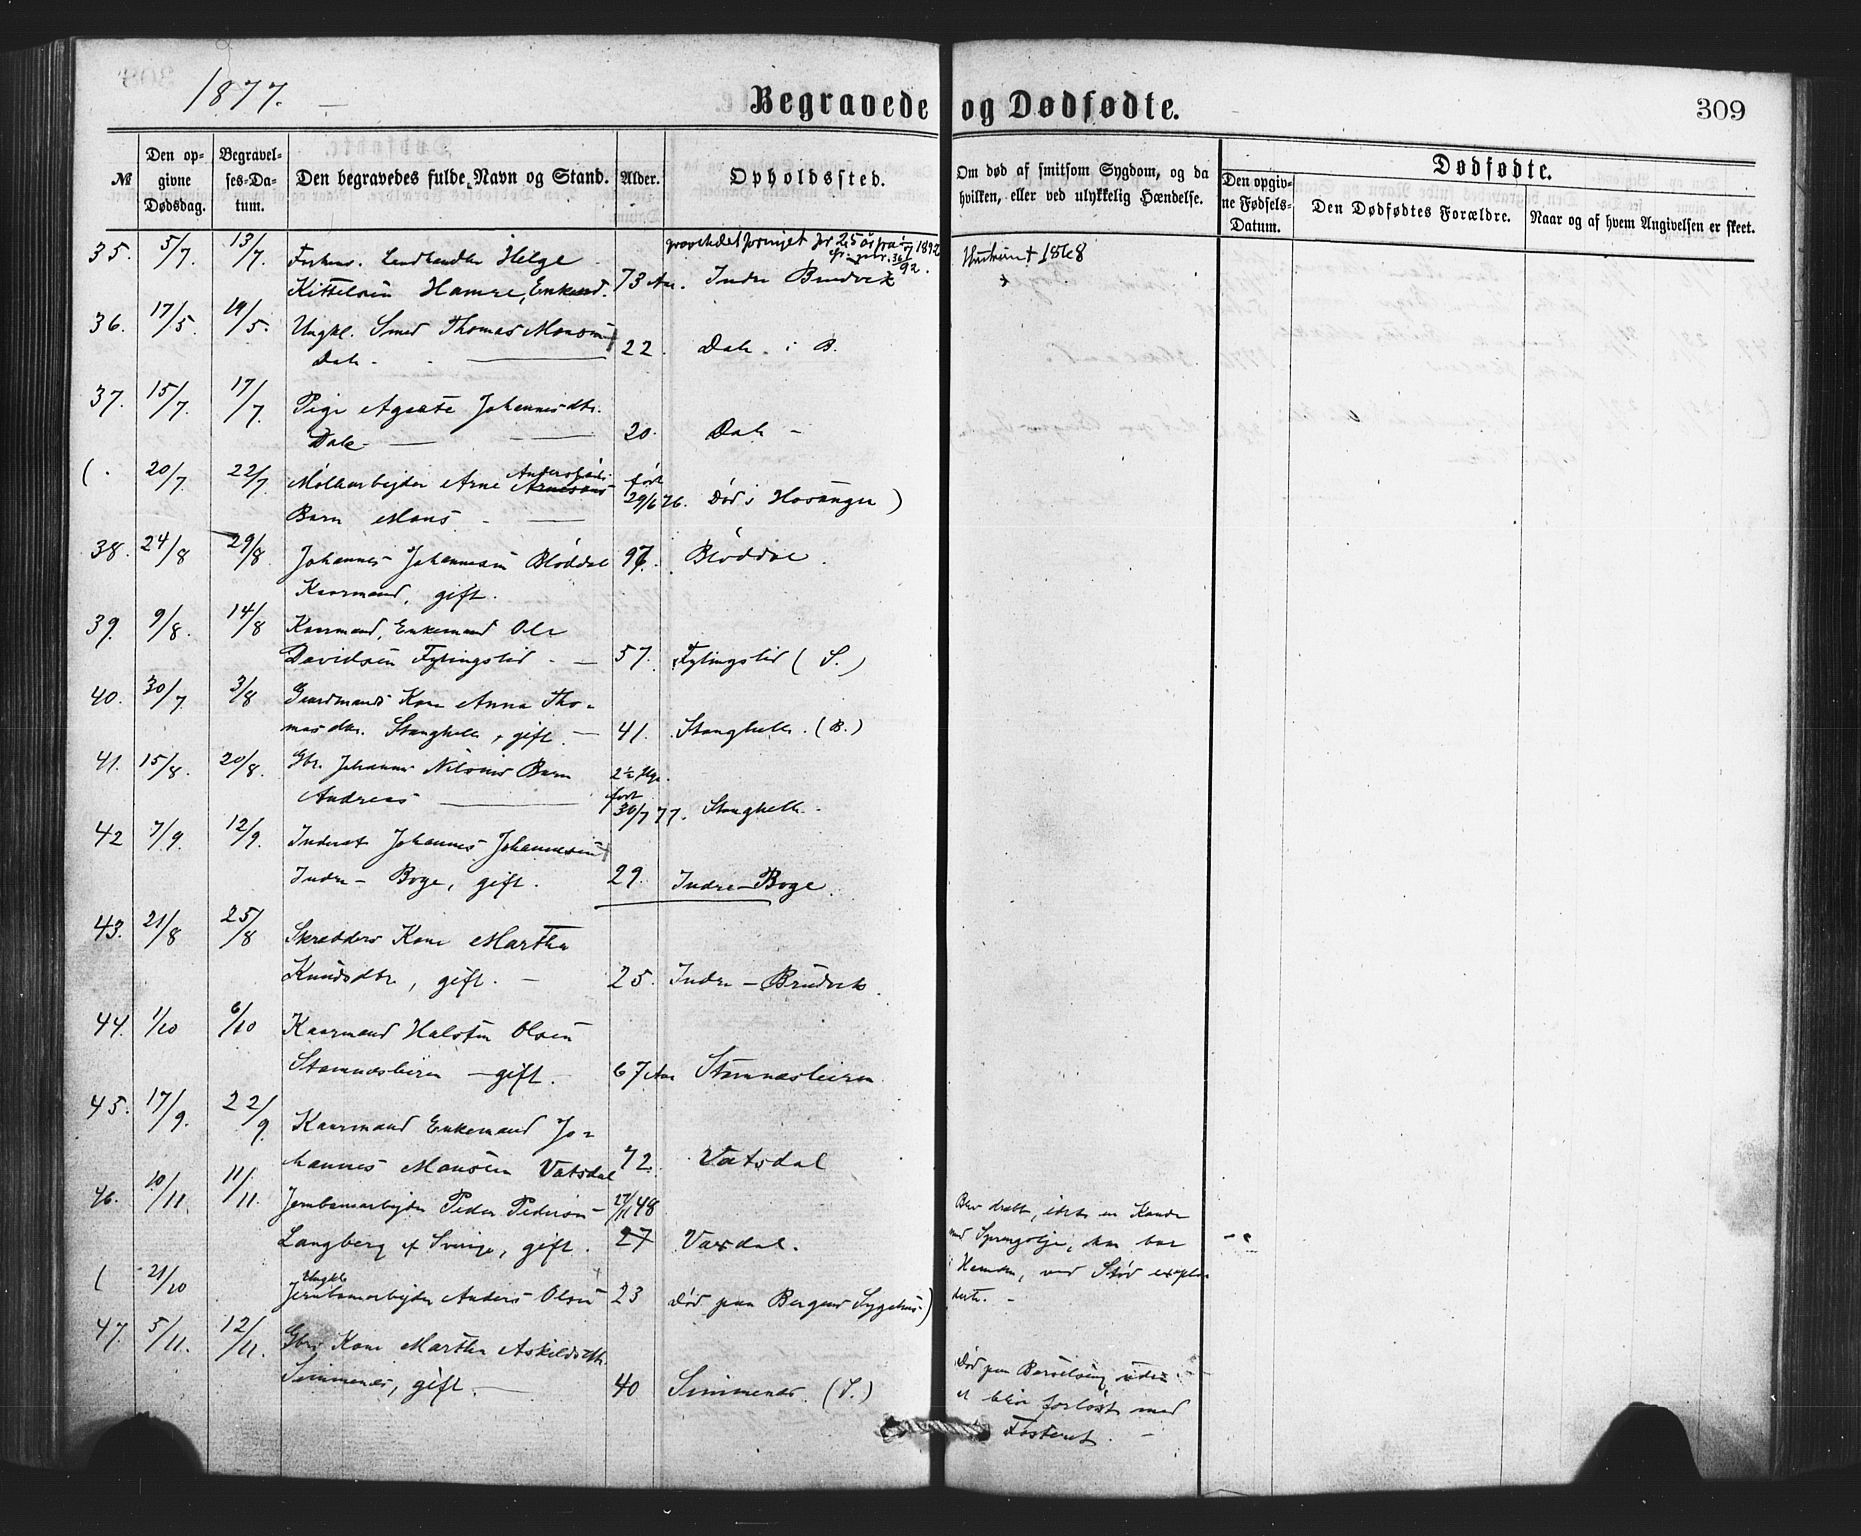 1877.
Begravede og Dødfødte.
309
№
Den opgivne Dødsdag.
Begravelses-Datum.
Den begravedes fulde Navn og Stand.
Alder.
Opholdssted.
Om død af smitsom Sygdom, og da hvilken, eller ved ulykkelig Hændelse.
Dødfødte.
Den opgivne Fødsels-Datum.
Den Dødfødtes Forældre.
Naar og af hvem Angivelsen er skeet.
35. 5/7. 13/7. Helge
Kittelsen Hamre, Enkemd. 73 Aar. Indre Brudvik
† 1868
36. 17/5. 19/5. Ungkl. Smed Thomas Monsen
Dale 22. Dale i B.
37. 15/7. 17/7. Pige Agate Johannesdtr.
Dale 20. Dale
( 20/7 22/7 Arne Arnesens
Barn Mons født 29/6 76. Død i Hosanger )
38. 24/8 29/8. Johannes Johannesen Bløddal 97. Bløddal
Kaarmand, gift.
39. 9/8. 14/8 Kaarmand, Enkemand Ole
Davidsen Fylingslid 57. Fylingslid (S.)
40. 30/7 3/8 Gaardmands Kone Anna Tho-
masdtr. Stanghelle, gift. 41. Stanghelle. (B.)
41. 15/8. 20/8. Gbr. Johannes Nilsens Barn 2½ Uge.
Andreas født 30/7 77. Stanghelle.
42 7/9. 12/9. Inderst Johannes Johannesen
Indre-Boge, gift. 29. Indre-Boge
43. 21/8 25/8 Skredders Kone Martha
Knudsdtr, gift. 25. Indre-Brudvik.
44. 1/10 6/10 Kaarmand Halsten Olsen
Stamnesleiren gift. 67 Aar Stamnesleiren
45. 17/9. 22/9. Kaarmand Enkemand Jo-
hannes Monsen Vatsdal 72. Vatsdal
46. 10/11. 11/11. Jernbanearbejder Peder Pedersen 27/11 48
Langberg af Sverige, gift. 27 Vaxdal.
Blev dræbt, idet en Kande
med Sprengolje, han bar
i Handen, ved Stød explo-
derte.
( 21/10 Ungkl. Jernbanearbejder Anders Olsen 23 Død paa Bergens Sygehus )
47. 5/11. 12/11. Gbrs Kone Martha Askildsdtr.
Simmenes, gift. 40 Simmenes. (S.)
Død paa Barselseng uden
at blive forløst med
Fosteret.